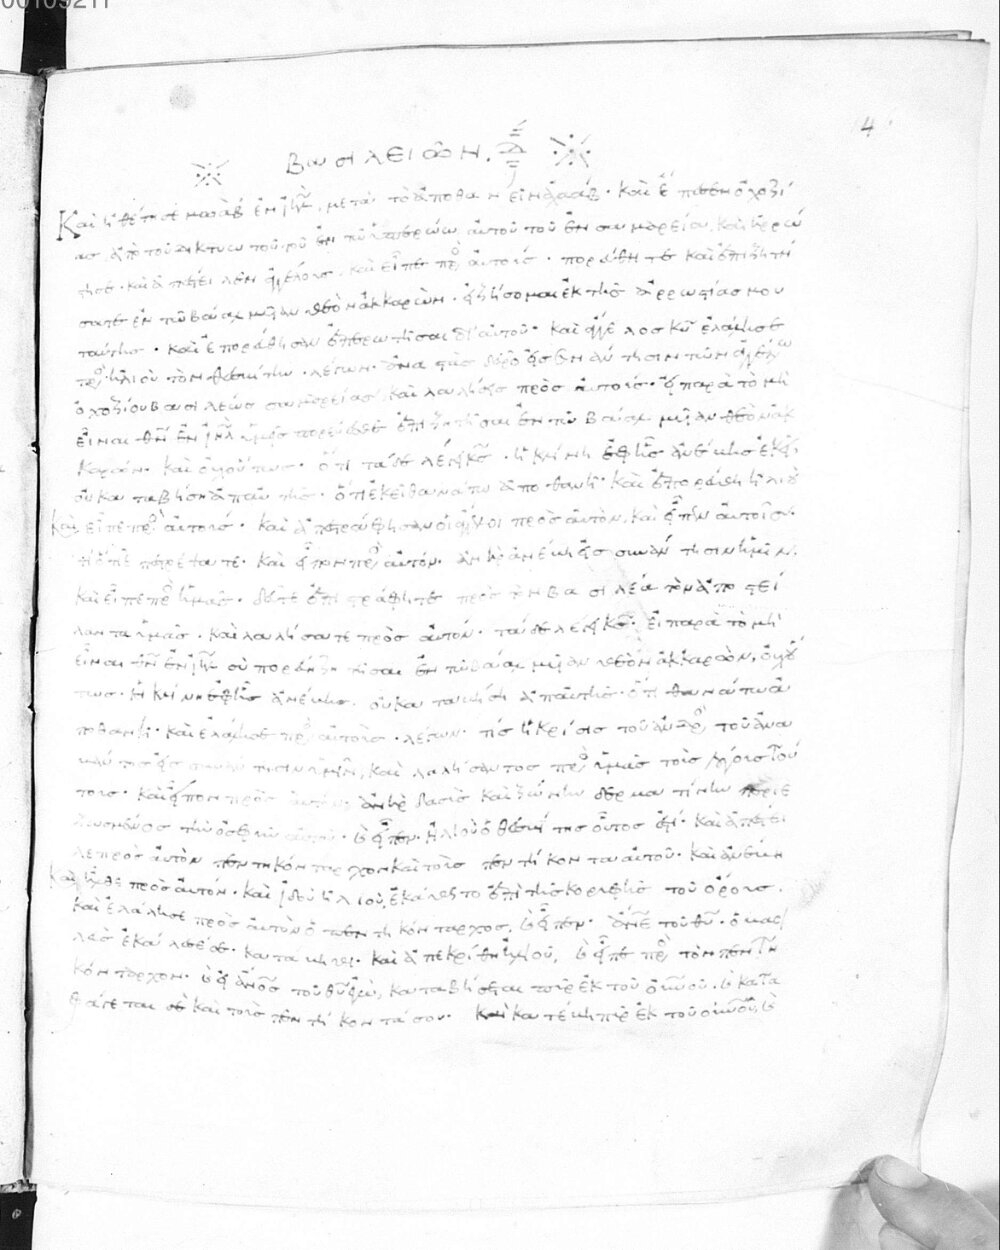 4
Βασιλειῶν. Δ
Καὶ ἠθέτησε μωὰβ ἐν ἰηλ, μετὰ τὸ ἀποθανεῖν ἀχαάβ. καὶ ἔπεσεν ὀχοζί
ας διὰ τοῦ δικτυωτοῦ τοῦ ἐν τῷ ὑπερώω αὐτοῦ τοῦ ἐν σαμαρεία, καὶ ἠρρώ
στησε. καὶ ἀπέστειλεν ἀγγέλους. καὶ εἶπε πρ αὐτούς. πορεύθητε καὶ ἐπιζητή
σατε ἐν τῷ βάαλ μυῖαν θεὸν ἀκκαρών. εἰ ζήσομαι ἐκ τῆς ἀρρωστίας μου
ταύτης. καὶ ἐπορεύθησαν ἐπερωτῆσαι δι αὐτοῦ. καὶ ἄγγελος κυ ἐλάλησε
πρ ἠλιοὺ τὸν θεσβίτην. λέγων. ἀναστὰς δεῦρο εἰς συνάντησιν τῶν ἀγγέλω
ὀχοζίου βασιλέως σαμαρείας, καὶ λαλήσεις πρὸς αὐτούς. εἰ παρὰ τὸ μὴ
εἶναι θν ἐν ιηλ ὑμεῖς πορεύεσθε ἐπιζητῆσαι ἐν τῷ βάαλ μυῖαν θεὸν ἀκ
καρών. καὶ οὐχ οὕτως. ὅτι τάδε λέγει κς. ἡ κλίνη ἐφ ἧς ἀνέβης ἐκεῖ,
οὐ καταβήση ἀπ αὐτῆς. ὅτι ἐκεῖ θανάτω ἀποθανῆ. καὶ ἐπορεύθη ἠλιοὺ
καὶ εἶπε πρ αὐτούς. καὶ ἀπεστράφησαν οἱ ἄγγελοι πρὸς αὐτὸν, καὶ εἶπεν αὐτοῖς.
τί ὅτι ἐπεστρέψατε. καὶ εἶπον πρ αὐτόν. ἀνὴρ ἀνέβη εἰς συνάντησιν ἡμῖν.
καὶ εἶπε πρ ἡμᾶς. δεῦτε ἐπιστράφητε πρὸς τὸν βασιλέα τὸν ἀποστεί
λαντα ὑμᾶς. καὶ λαλήσατε πρὸς αὐτόν. τάδε λέγει κς. εἰ παρὰ τὸ μὴ
εἶναι θν ἐν ιηλ σὺ πορεύη ζητῆσαι ἐν τῷ βάαλ μυῖαν θεὸν ἀκκαρών, οὐχ οὕ
τως. ἡ κλίνη ἐφ ἧς ἀνέβης. οὐ καταβήση ἀπ αὐτῆς. ὅτι θανάτω ἀ
ποθανῆ. καὶ ἐλάλησε πρ αὐτούς. λέγων. τίς ἡ κρίσις τοῦ ἀνδρ τοῦ ἀνα
βάντος εἰς συνάντησιν ὑμῖν, καὶ λαλήσαντος πρ ὑμᾶς τοὺς λόγους τού
τους. καὶ εἶπον πρὸς αὐτόν. ἀνὴρ δασὺς καὶ ζώνην δερματίνην περιε
ζωσμένος τὴν ὀσφὺν αὐτοῦ. καὶ εἶπεν. ἠλιοὺ ὁ θεσβίτης οὗτος ἐστί. καὶ ἀπέστει
λε πρὸς αὐτὸν πεντηκόνταρχον καὶ τοὺς πεντήκοντα αὐτοῦ. καὶ ἀνέβη
καὶ ἦλθε πρὸς αὐτόν. καὶ ἰδοὺ ἠλιοὺ, ἐκάθητο ἐπὶ τῆς κορυφῆς τοῦ ὄρους.
καὶ ἐλάλησε πρὸς αὐτὸν ὁ πεντηκόνταρχος, καὶ εἶπεν. ἄνε τοῦ θυ. ὁ βασι
λεὺς ἐκάλεσέ σε. κατάβηθι. καὶ ἀπεκρίθη ἠλιού, καὶ εἶπε πρ τὸν πεντη
κόνταρχον. καὶ εἰ ἄνος τοῦ θυ ἐγώ, καταβήσεται πῦρ ἐκ τοῦ οὐνοῦ, καὶ κατα
φάγεταί σε καὶ τοὺς πεντήκοντά σου. καὶ κατέβη πῦρ ἐκ τοῦ οὐνοῦ, καὶ